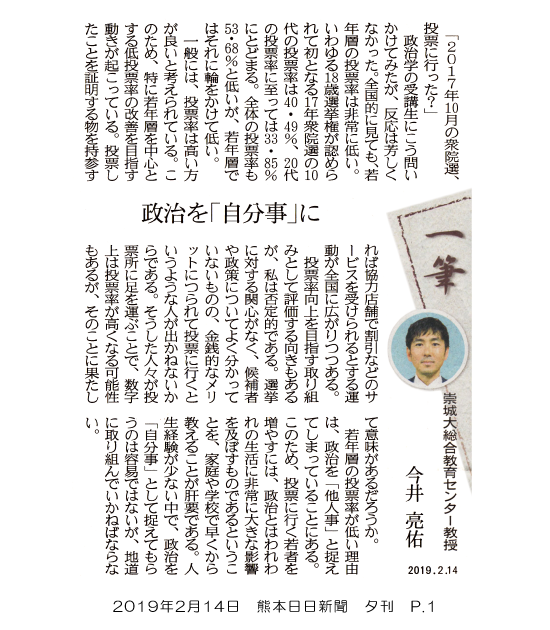 「2017年10月の衆院選、
投票に行った？」
政治学の受講生にこう問い
かけてみたが、反応は芳しく
なかった。全国的に見ても、若
年層の投票率は非常に低い。
いわゆる18歳選挙権が認めら
れて初となる17年衆院選の10
代の投票率は40・49％、20代
の投票率に至っては33・85％
にとどまる。全体の投票率も
53・68％と低いが、若年層で
はそれに輪をかけて低い。
一般には、投票率は高い方
が良いと考えられている。こ
のため、特に若年層を中心と
する低投票率の改善を目指す
動きが起こっている。投票し
たことを証明する物を持参す
政治を「自分事」に
一筆
れば協力店舗で割引などのサ
ービスを受けられるとする運
動が全国に広がりつつある。
投票率向上を目指す取り組
みとして評価する向きもある
が、私は否定的である。選挙
に対する関心がなく、候補者
や政策についてよく分かって
いないものの、金銭的なメリ
ットにつられて投票に行くと
いうような人が出かねないか
らである。そうした人々が投
票所に足を運ぶことで、数字
上は投票率が高くなる可能性
もあるが、そのことに果たし
崇城大総合教育センター教授
今井 亮佑
2019.2.14
て意味があるだろうか。
若年層の投票率が低い理由
は、政治を「他人事」と捉え
てしまっていることにある。
このため、投票に行く若者を
増やすには、政治とはわれわ
れの生活に非常に大きな影響
を及ぼすものであるというこ
とを、家庭や学校で早くから
教えることが肝要である。人
生経験が少ない中で、政治を
「自分事」として捉えてもら
うのは容易ではないが、地道
に取り組んでいかねばならな
い。
2019年2月14日 熊本日日新聞 夕刊 P.1